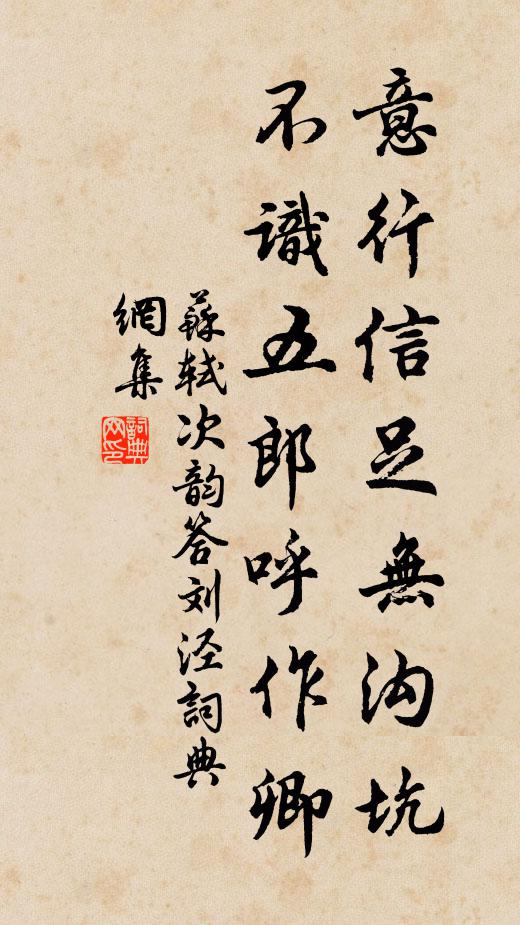 意行信足無沟坑
不識五郎呼作卿
蘇軾次韵答刘泾詞典
網集
詞典
网印